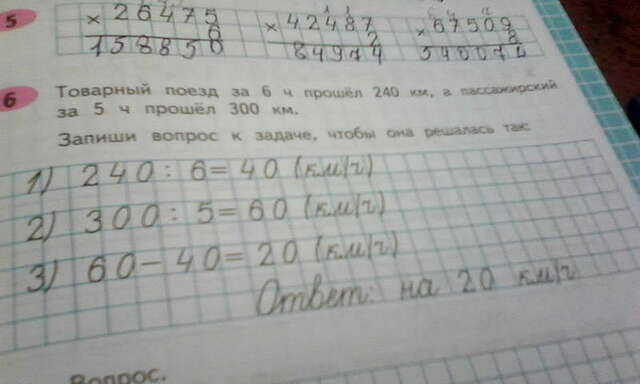 5
× 26475 × 42487 × 67509
6 2 8
158850 84974 540072
6 Товарный поезд за 6 ч прошёл 240 км, а пассажирский
за 5 ч прошёл 300 км.
Запиши вопрос к задаче, чтобы она решалась так:
1) 240 : 6 = 40 (км/ч)
2) 300 : 5 = 60 (км/ч)
3) 60 – 40 = 20 (км/ч)
Ответ: на 20 км/ч
Вопрос.